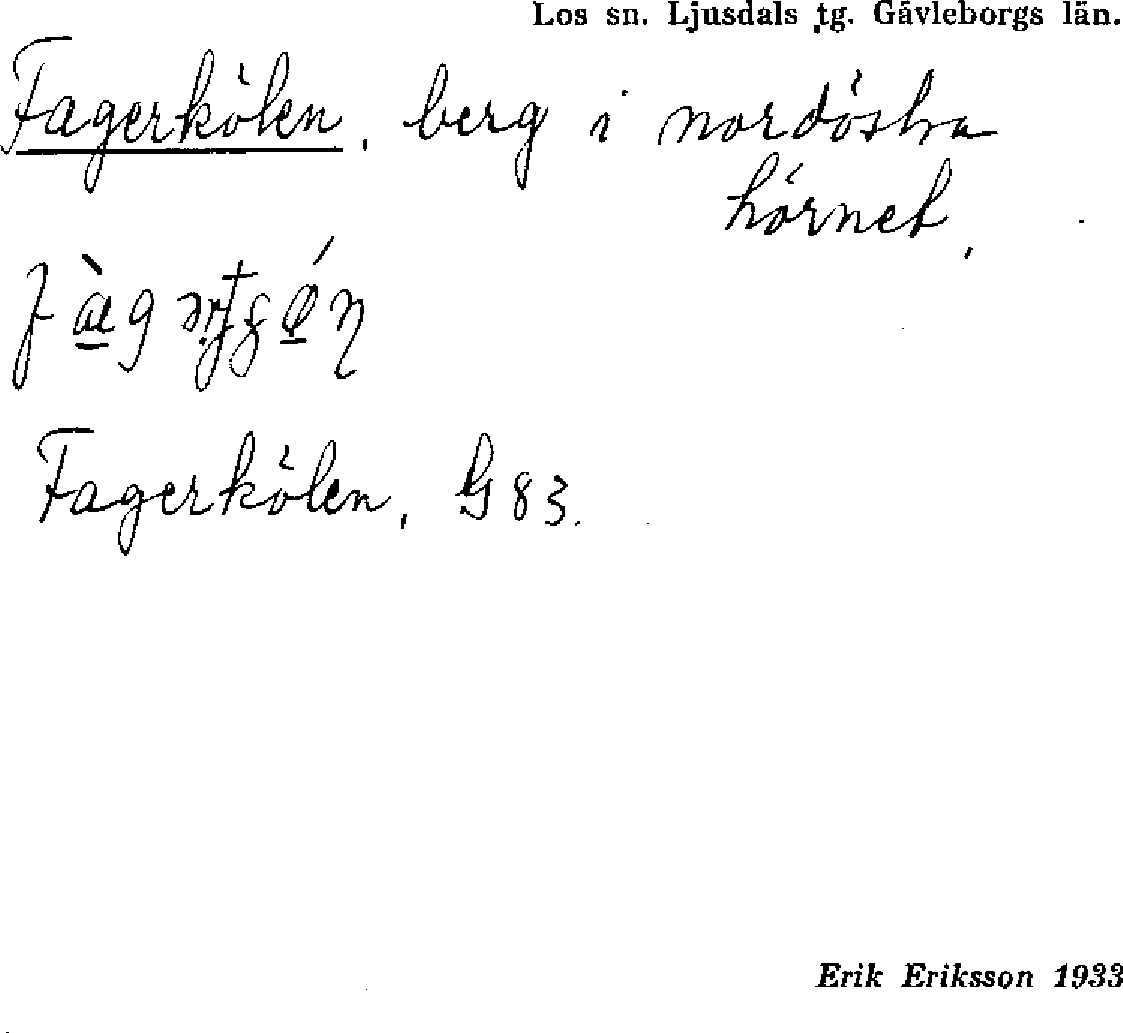 Los sn. Ljusdals tg. Gävleborgs län.
Fagerkölen, berg i nordöstra
hörnet,
Fagerkölen, G 83.
Erik Eriksson 1933